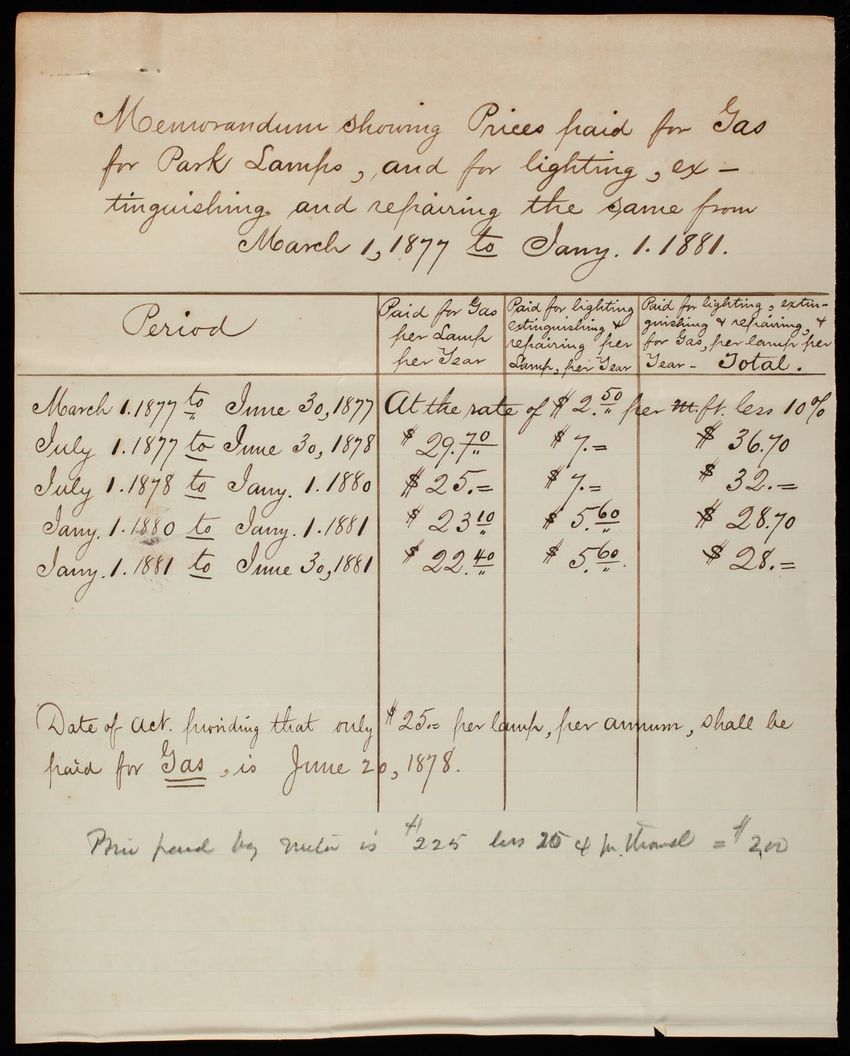 Memorandum showing Prices paid for Gas
for Park Lamps, and for lighting, ex-
tinguishing and repairing the same from
March 1, 1877 to Jany. 1. 1881.
Period
Paid for Gas
per Lamp
per Year
Paid for lighting
extinguishing &
repairing per
Lamp, per Year
Paid for lighting, extin-
guishing & repairing, &
for Gas, per lamp per
Year - Total.
March 1. 1877 to June 30, 1877 At the rate of $2.50 per m. ft. less 10%
July 1. 1877 to June 30, 1878 $29.70 $7.= $36.70
July 1. 1878 to Jany. 1. 1880 $25.= $7.= $32.=
Jany. 1. 1880 to Jany. 1. 1881 $23 10 $5.60 $28.70
Jany. 1. 1881 to June 30, 1881 $22.40 $5.60 $28.=
Date of act. providing that only $25.= per lamp, per annum, shall be
paid for Gas, is June 20, 1878.
Price paid by meter is $225 less 25 ¢ pr. thousd = $2,00